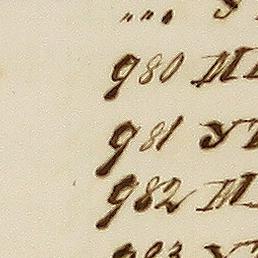 "" "
980 M
981 Y
982 M
983 Y